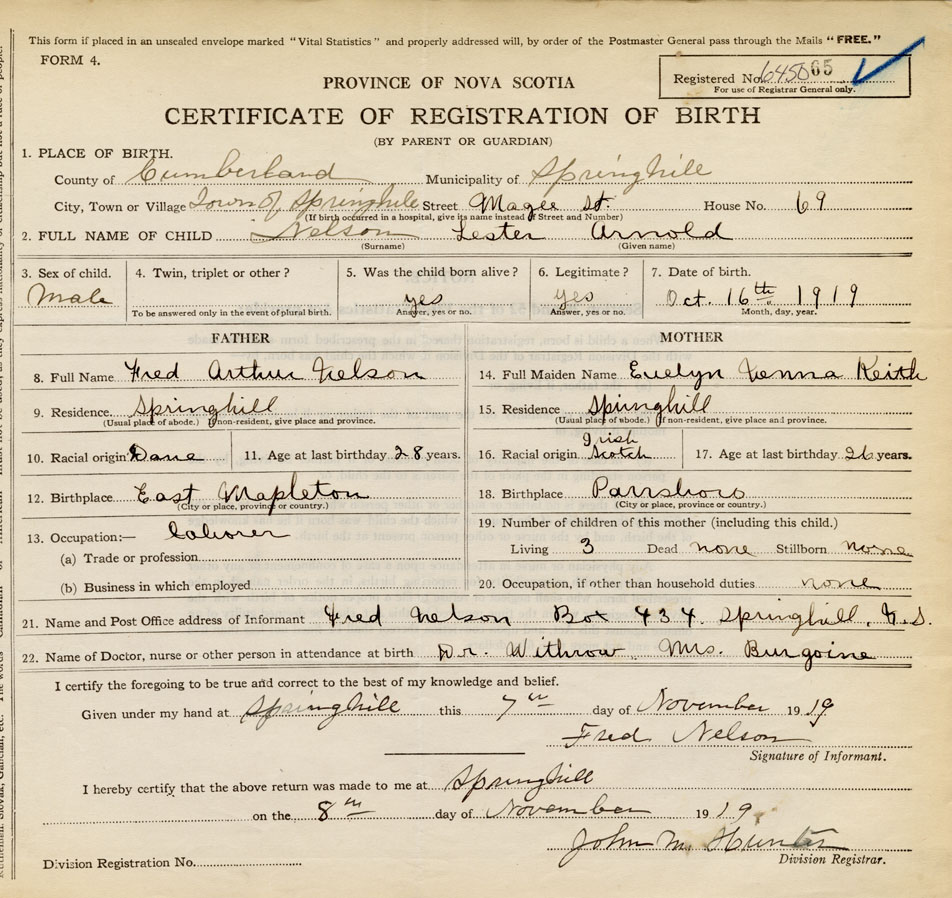 This form if placed in an unsealed envelope marked "Vital Statistics" and properly addressed will, by order of the Postmaster General pass through the Mails "FREE."
FORM 4.
Registered No. 64500 65
For use of Registrar General only.
PROVINCE OF NOVA SCOTIA
CERTIFICATE OF REGISTRATION OF BIRTH
(BY PARENT OR GUARDIAN)
1. PLACE OF BIRTH.
County of Cumberland Municipality of Springhill
City, Town or Village Town of Springhill Street Magee St. House No. 69
(If birth occurred in a hospital, give its name instead of Street and Number)
2. FULL NAME OF CHILD Nelson Lester Arnold
(Surname) (Given name)
3. Sex of child. 4. Twin, triplet or other? 5. Was the child born alive? 6. Legitimate? 7. Date of birth.
Male yes yes Oct. 16th 1919
To be answered only in the event of plural birth. Answer, yes or no. Answer, yes or no. Month, day, year.
FATHER MOTHER
8. Full Name Fred Arthur Nelson 14. Full Maiden Name Evelyn Keith
9. Residence. Springhill 15. Residence Springhill
(Usual place of abode.) If non-resident, give place and province. (Usual place of abode.) If non-resident, give place and province.
10. Racial origin Dane 11. Age at last birthday 28 years. 16. Racial origin Irish Scotch 17. Age at last birthday 26 years.
12. Birthplace East Mapleton 18. Birthplace Parrsboro
(City or place, province or country.) (City or place, province or country.)
13. Occupation:— Laborer 19. Number of children of this mother (including this child.)
(a) Trade or profession Living 3 Dead none Stillborn none
(b) Business in which employed 20. Occupation, if other than household duties none
21. Name and Post Office address of Informant Fred Nelson Box 434. Springhill, N.S.
22. Name of Doctor, nurse or other person in attendance at birth Dr. Withrow Mrs. Burgoine
I certify the foregoing to be true and correct to the best of my knowledge and belief.
Given under my hand at Springhill this 7th day of November 1919
Fred Nelson
Signature of Informant.
I hereby certify that the above return was made to me at Springhill
on the 8th day of November 1919.
John M. Hunter
Division Registration No. Division Registrar.